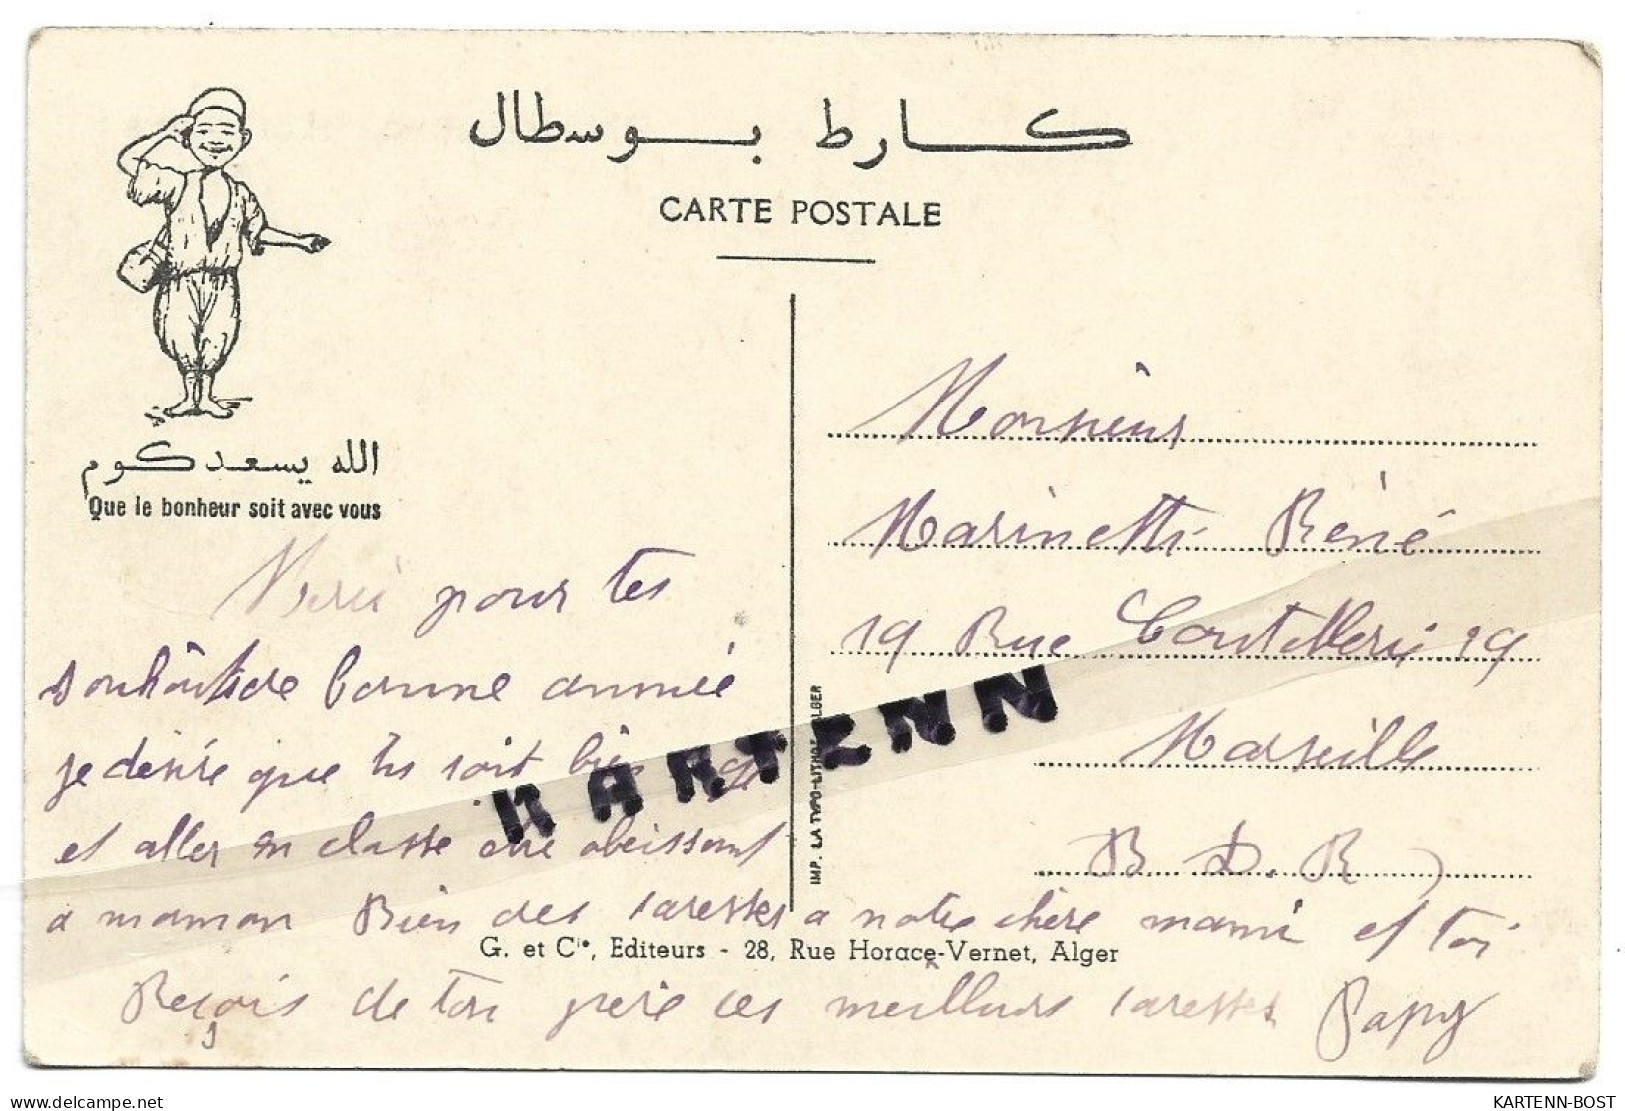 كارط بوسطال
CARTE POSTALE
الله يسعدكوم
Que le bonheur soit avec vous
Monsieur
Marinetti Réné
19 Rue Coutellerie 19
Marseille
B. D. R
Merci pour tes
souhâits de bonne année
je désire que tu soit bien
et aller en classe être obeissant
a maman Bien des caresses a notre chère mami et toi
Reçois de ton père ces meilleurs caresses Papy
KARTENN
IMP. LA TYPO-LITHO ALGER
G. et Cie, Editeurs - 28, Rue Horace-Vernet, Alger
www.delcampe.net
KARTENN-BOST